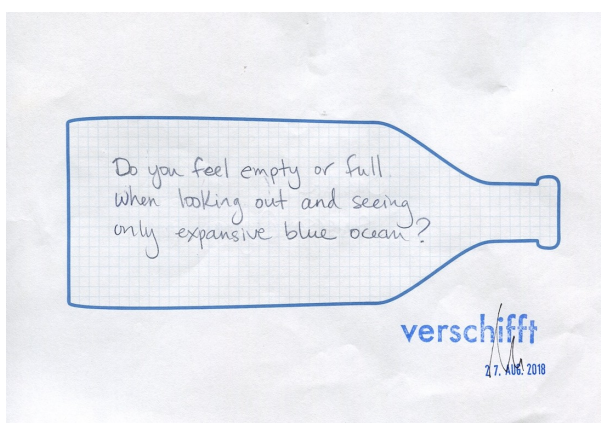 Do you feel empty or full
when looking out and seeing
only expansive blue ocean?
verschifft
27. AUG. 2018